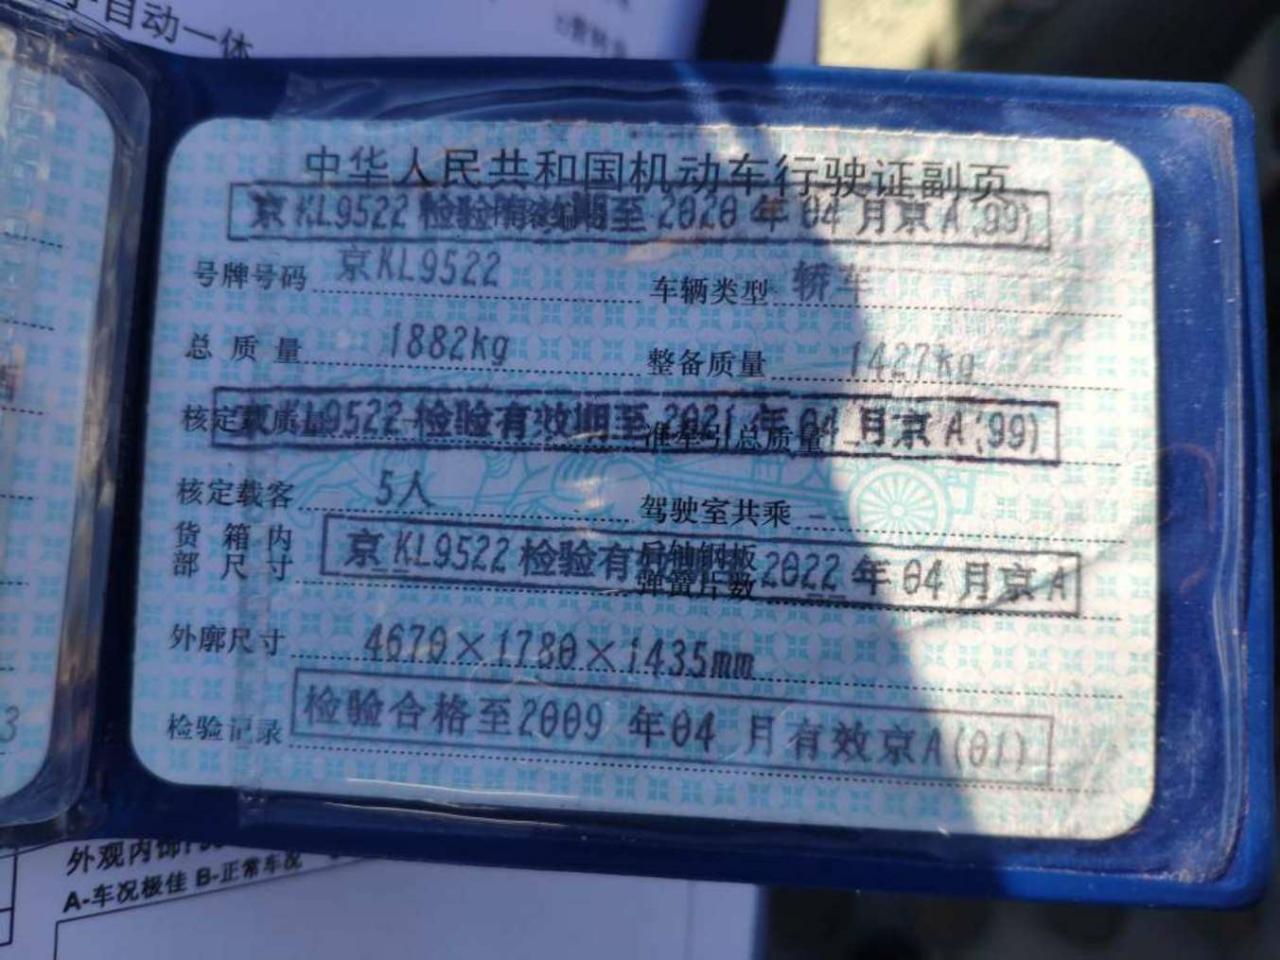 自动一体
中华人民共和国机动车行驶证副页
京KL9522 检验有效期至 2020 年 04 月京A(99)
号牌号码 京KL9522 车辆类型 轿车
总质量 1882kg 整备质量 1427kg
核定载质量 准牵引总质量
京KL9522 检验有效期至 2021 年 04 月京A(99)
核定载客 5人 驾驶室共乘
货箱内部尺寸 后轴钢板弹簧片数
京KL9522 检验有 2022 年 04 月京A
外廓尺寸 4670×1780×1435mm
检验记录 检验合格至2009 年04 月有效京A(01)
3
外观内饰
A-车况极佳 B-正常车况